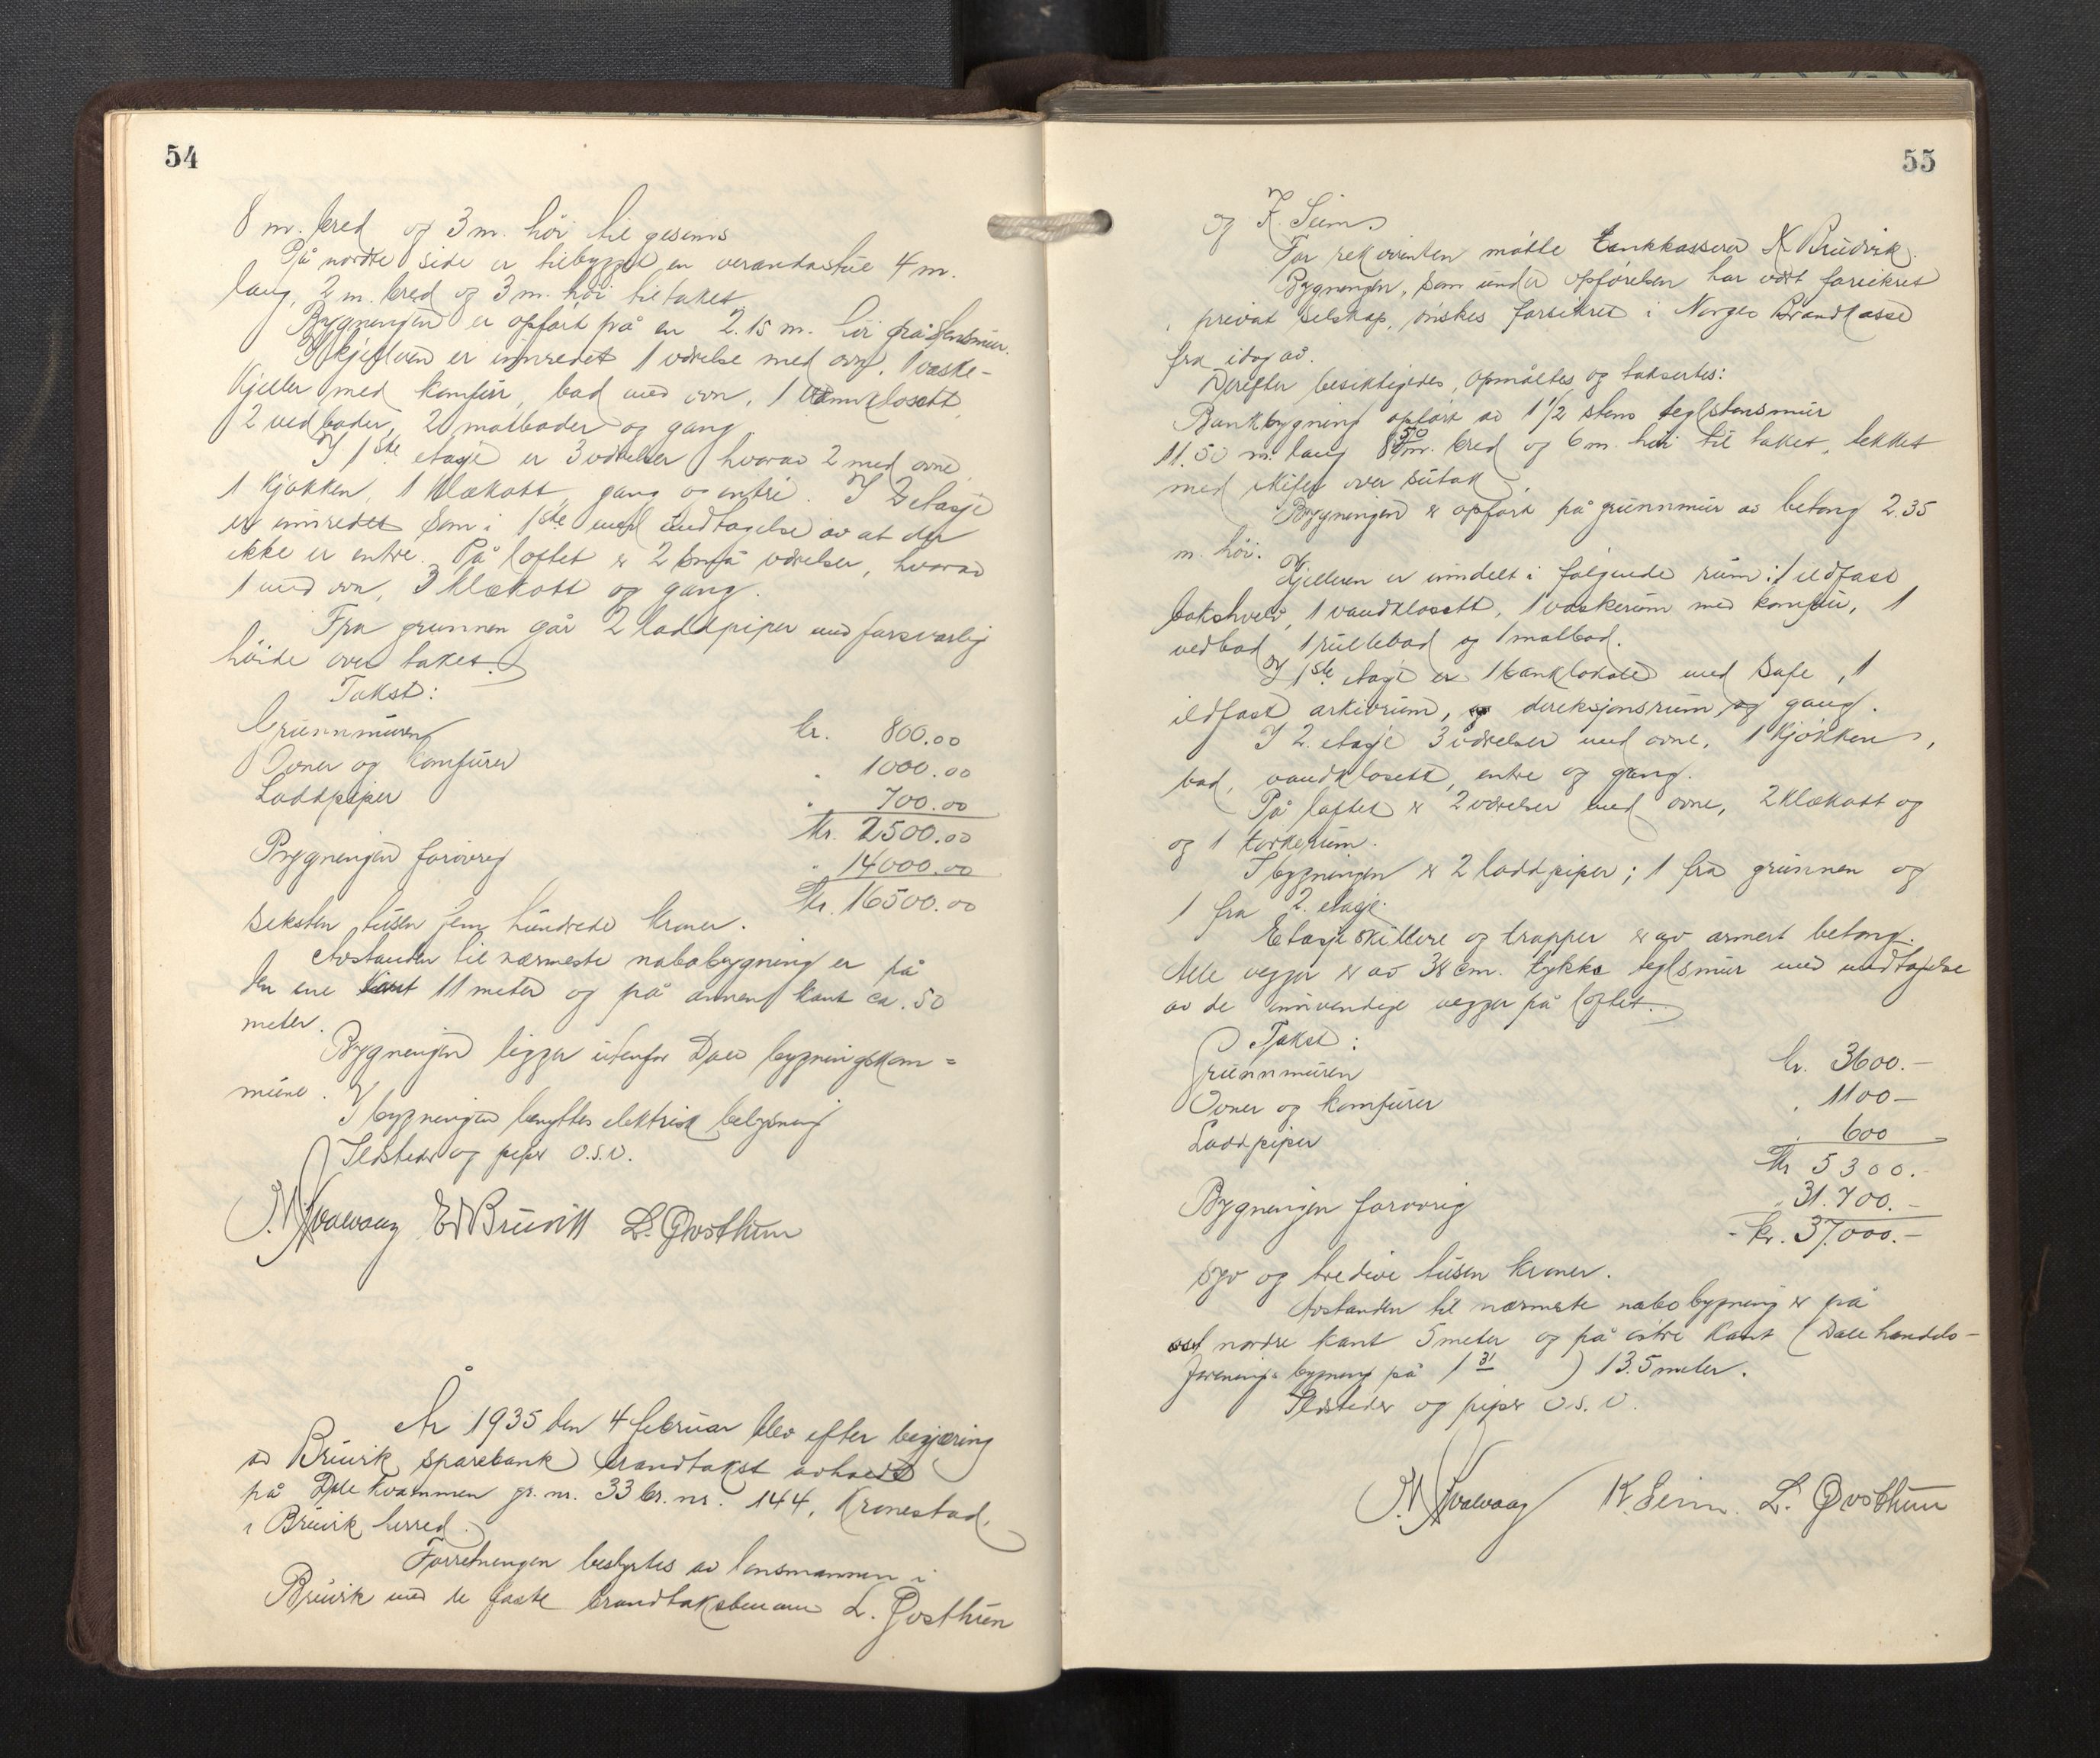 54
8 m. bred og 3 m. höi til gesims
På nordre side er tilbygget en verandastue 4 m.
lang, 2 m. bred og 3 m. höi til taket.
Bygningen er opført på en 2.15 m. höi gråstensmur.
I kjelleren er innredet 1 værelse med ovn, 1 vaske-
kjeller med komfur, bad med ovn, 1 vannklosett,
2 vedboder, 2 matboder og gang.
I 1ste etasje er 3 værelser hvorav 2 med ovne,
1 kjøkken, 1 klækott, gang og entré. I 2 etasje
er innredet som i 1ste med undtagelse av at der
ikke er entre. På loftet er 2 små værelser, hvorav
1 med ovn, 3 klækott og gang.
Fra grunnen går 2 loddpiper med forsvarlig
höide over taket.
Takst:
Grunnmuren kr. 800.00
Ovner og komfurer " 1000.00
Loddpiper " 700.00
Kr. 2500.00
Bygningen forøvrig " 14000.00
Kr. 16500.00
seksten tusen fem hundrede kroner.
Avstanden til nærmeste nabobygning er på
den ene kant 11 meter og på annen kant ca. 50
meter.
Bygningen ligger utenfor Dale bygningskom=
mune.
I bygningen benyttes elektrisk belysning
Ildsteder og piper o.s.v.
E Bruvik L. Qvsthun
År 1935 den 4 februar blev efter begjæring
av Bruvik sparebank brandtakst avholdt
på Dale Kvammen gr. nr. 33 br. nr. 144, Kronestad,
i Bruvik herred.
Forretningen bestyrtes av lensmannen i
Bruvik med de faste brandtakstmenn L. Qvsthun
55
og K. Seim
For rekvirenten møtte bankkasserer K Bruvik.
Bygningen, som under opførelsen har vært forsikret
i privat selskap, ønskes forsikret i Norges Brandkasse
fra idag av.
Derefter besiktigedes, opmåltes og taksertes:
Bankbygning opført av 1 1/2 stens teglstensmur
11.50 m. lang 8.50 m. bred og 6 m. höi til taket, tekket
med skifer over sutak.
Bygningen er opført på grunnmur av betong 2.35
m. höi.
Kjelleren er inndelt i følgende rum: 1 ildfast
bokshvelv, 1 vandklosett, 1 vaskerum med komfur, 1
vedbod, 1 rullebod og 1 matbod.
I 1ste etasje er 1 banklokale med safe, 1
ildfast arkivrum, direksjonsrum og gang.
I 2. etasje 3 værelser med ovne, 1 kjøkken,
bad, vandklosett, entre og gang.
På loftet er 2 værelser med ovne, 2 klækott og
og 1 tørkerum.
I bygningen er 2 loddpiper; 1 fra grunnen og
1 fra 2. etasje.
Etasjeskillere og trapper er av armert betong.
Alle vegger er av 38 cm. tykke teglsmur med undtagelse
av de innvendige vegger på loftet.
Takst:
Grunnmuren kr. 3600.-
Ovner og komfurer " 1100-
Loddpiper " 600
Kr 5300.-
Bygningen forøvrig " 31.700.-
kr. 37.000.-
syv og tredive tusen kroner.
Avstanden til nærmeste nabobygning er på
nordre kant 5 meter og på østre kant (Dale handels-
forenings bygning på 1 31 ) 13.5 meter.
Ildsteder og piper o.s.v.
K. Seim. L. Qvsthun